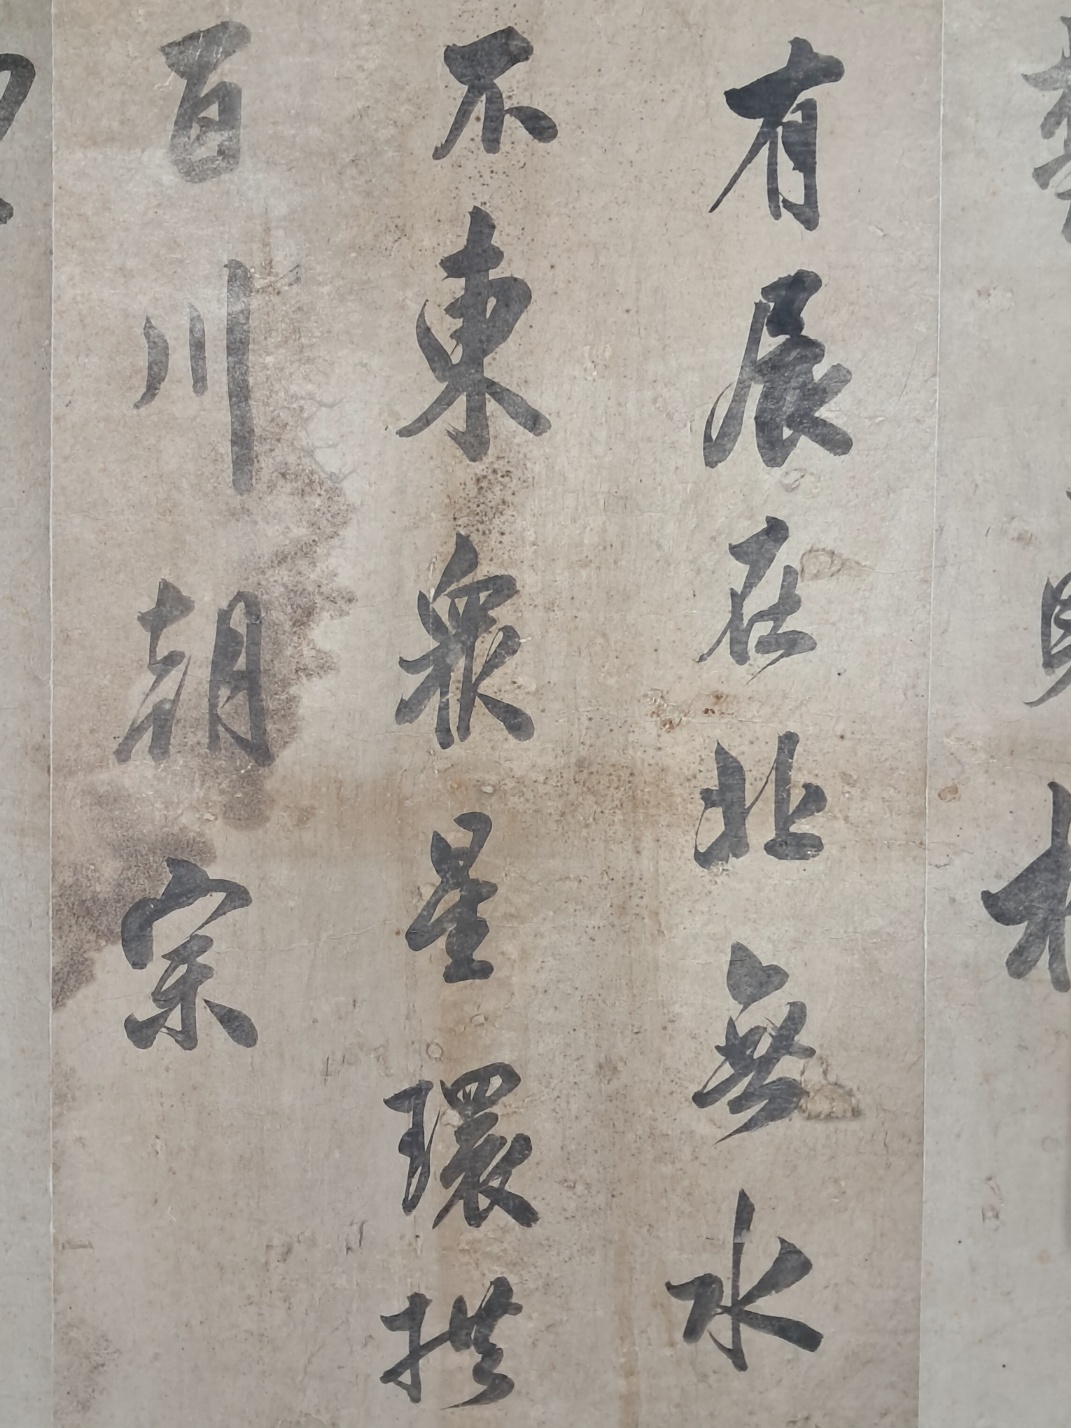 有辰在北無水
不東衆星環拱
百川朝宗